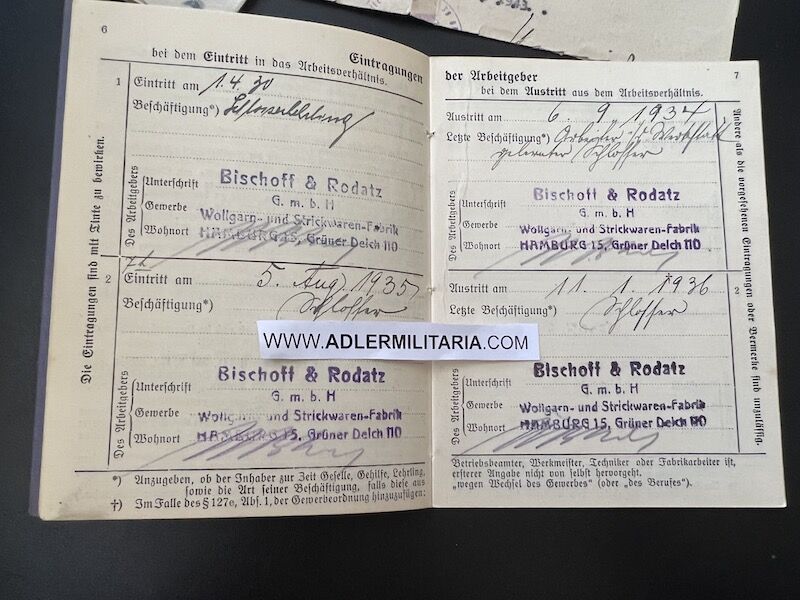 6
Eintragungen
bei dem Eintritt in das Arbeitsverhältnis.
Die Eintragungen sind mit Tinte zu bewirken.
1
Eintritt am 1.4.30
Beschäftigung*) Schlosserlehrling
Des Arbeitgebers
Unterschrift
Gewerbe
Wohnort
Bischoff & Rodatz
G. m. b. H
Wollgarn- und Strickwaren-Fabrik
HAMBURG 15, Grüner Deich 110
2
Eintritt am 5. Aug. 1935
Beschäftigung*) Schlosser
Des Arbeitgebers
Unterschrift
Gewerbe
Wohnort
Bischoff & Rodatz
G. m. b. H
Wollgarn- und Strickwaren-Fabrik
HAMBURG 15, Grüner Deich 110
*) Anzugeben, ob der Inhaber zur Zeit Geselle, Gehilfe, Lehrling,
sowie die Art seiner Beschäftigung, falls diese aus
†) Im Falle des § 127e, Abs. 1, der Gewerbeordnung hinzuzufügen:
7
der Arbeitgeber
bei dem Austritt aus dem Arbeitsverhältnis.
Austritt am 6. 9. 1934
Letzte Beschäftigung*) Arbeiter i/d Werkstatt
gelernter Schlosser
Des Arbeitgebers
Unterschrift
Gewerbe
Wohnort
Bischoff & Rodatz
G. m. b. H
Wollgarn- und Strickwaren-Fabrik
HAMBURG 15, Grüner Deich 110
Austritt am 11. 1. †936
2
Letzte Beschäftigung*) Schlosser
Des Arbeitgebers
Unterschrift
Gewerbe
Wohnort
Bischoff & Rodatz
G. m. b. H
Wollgarn- und Strickwaren-Fabrik
HAMBURG 15, Grüner Deich 110
Andere als die vorgesehenen Eintragungen oder Vermerke sind unzulässig.
Betriebsbeamter, Werkmeister, Techniker oder Fabrikarbeiter ist,
ersterer Angabe nicht von selbst hervorgeht.
„wegen Wechsel des Gewerbes“ (oder „des Berufes“).
WWW.ADLERMILITARIA.COM